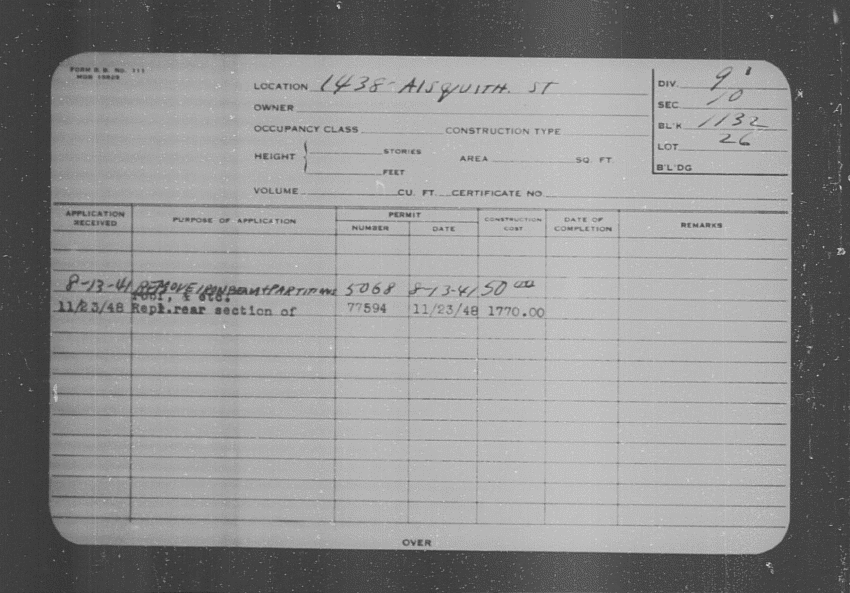 FORM B. B. NO. 111
MGB 19829
LOCATION 1438 - AISQUITH. ST
DIV. 9
OWNER
SEC 10
OCCUPANCY CLASS CONSTRUCTION TYPE
BL'K 1132
HEIGHT STORIES AREA SQ. FT.
FEET
LOT 26
B'L'DG
VOLUME CU. FT. CERTIFICATE NO.
APPLICATION RECEIVED PURPOSE OF APPLICATION PERMIT NUMBER DATE CONSTRUCTION COST DATE OF COMPLETION REMARKS
8-13-41 REMOVE IRON BEAM + PARTITIONS 5068 8-13-41 50 00
roof, & etc.
11/23/48 Repl.rear section of 77594 11/23/48 1770.00
OVER